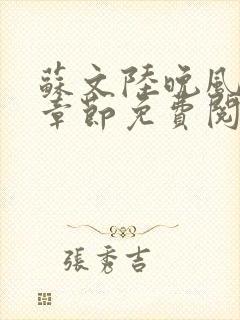 蘇文陸晚風
章節免費閱
張秀吉